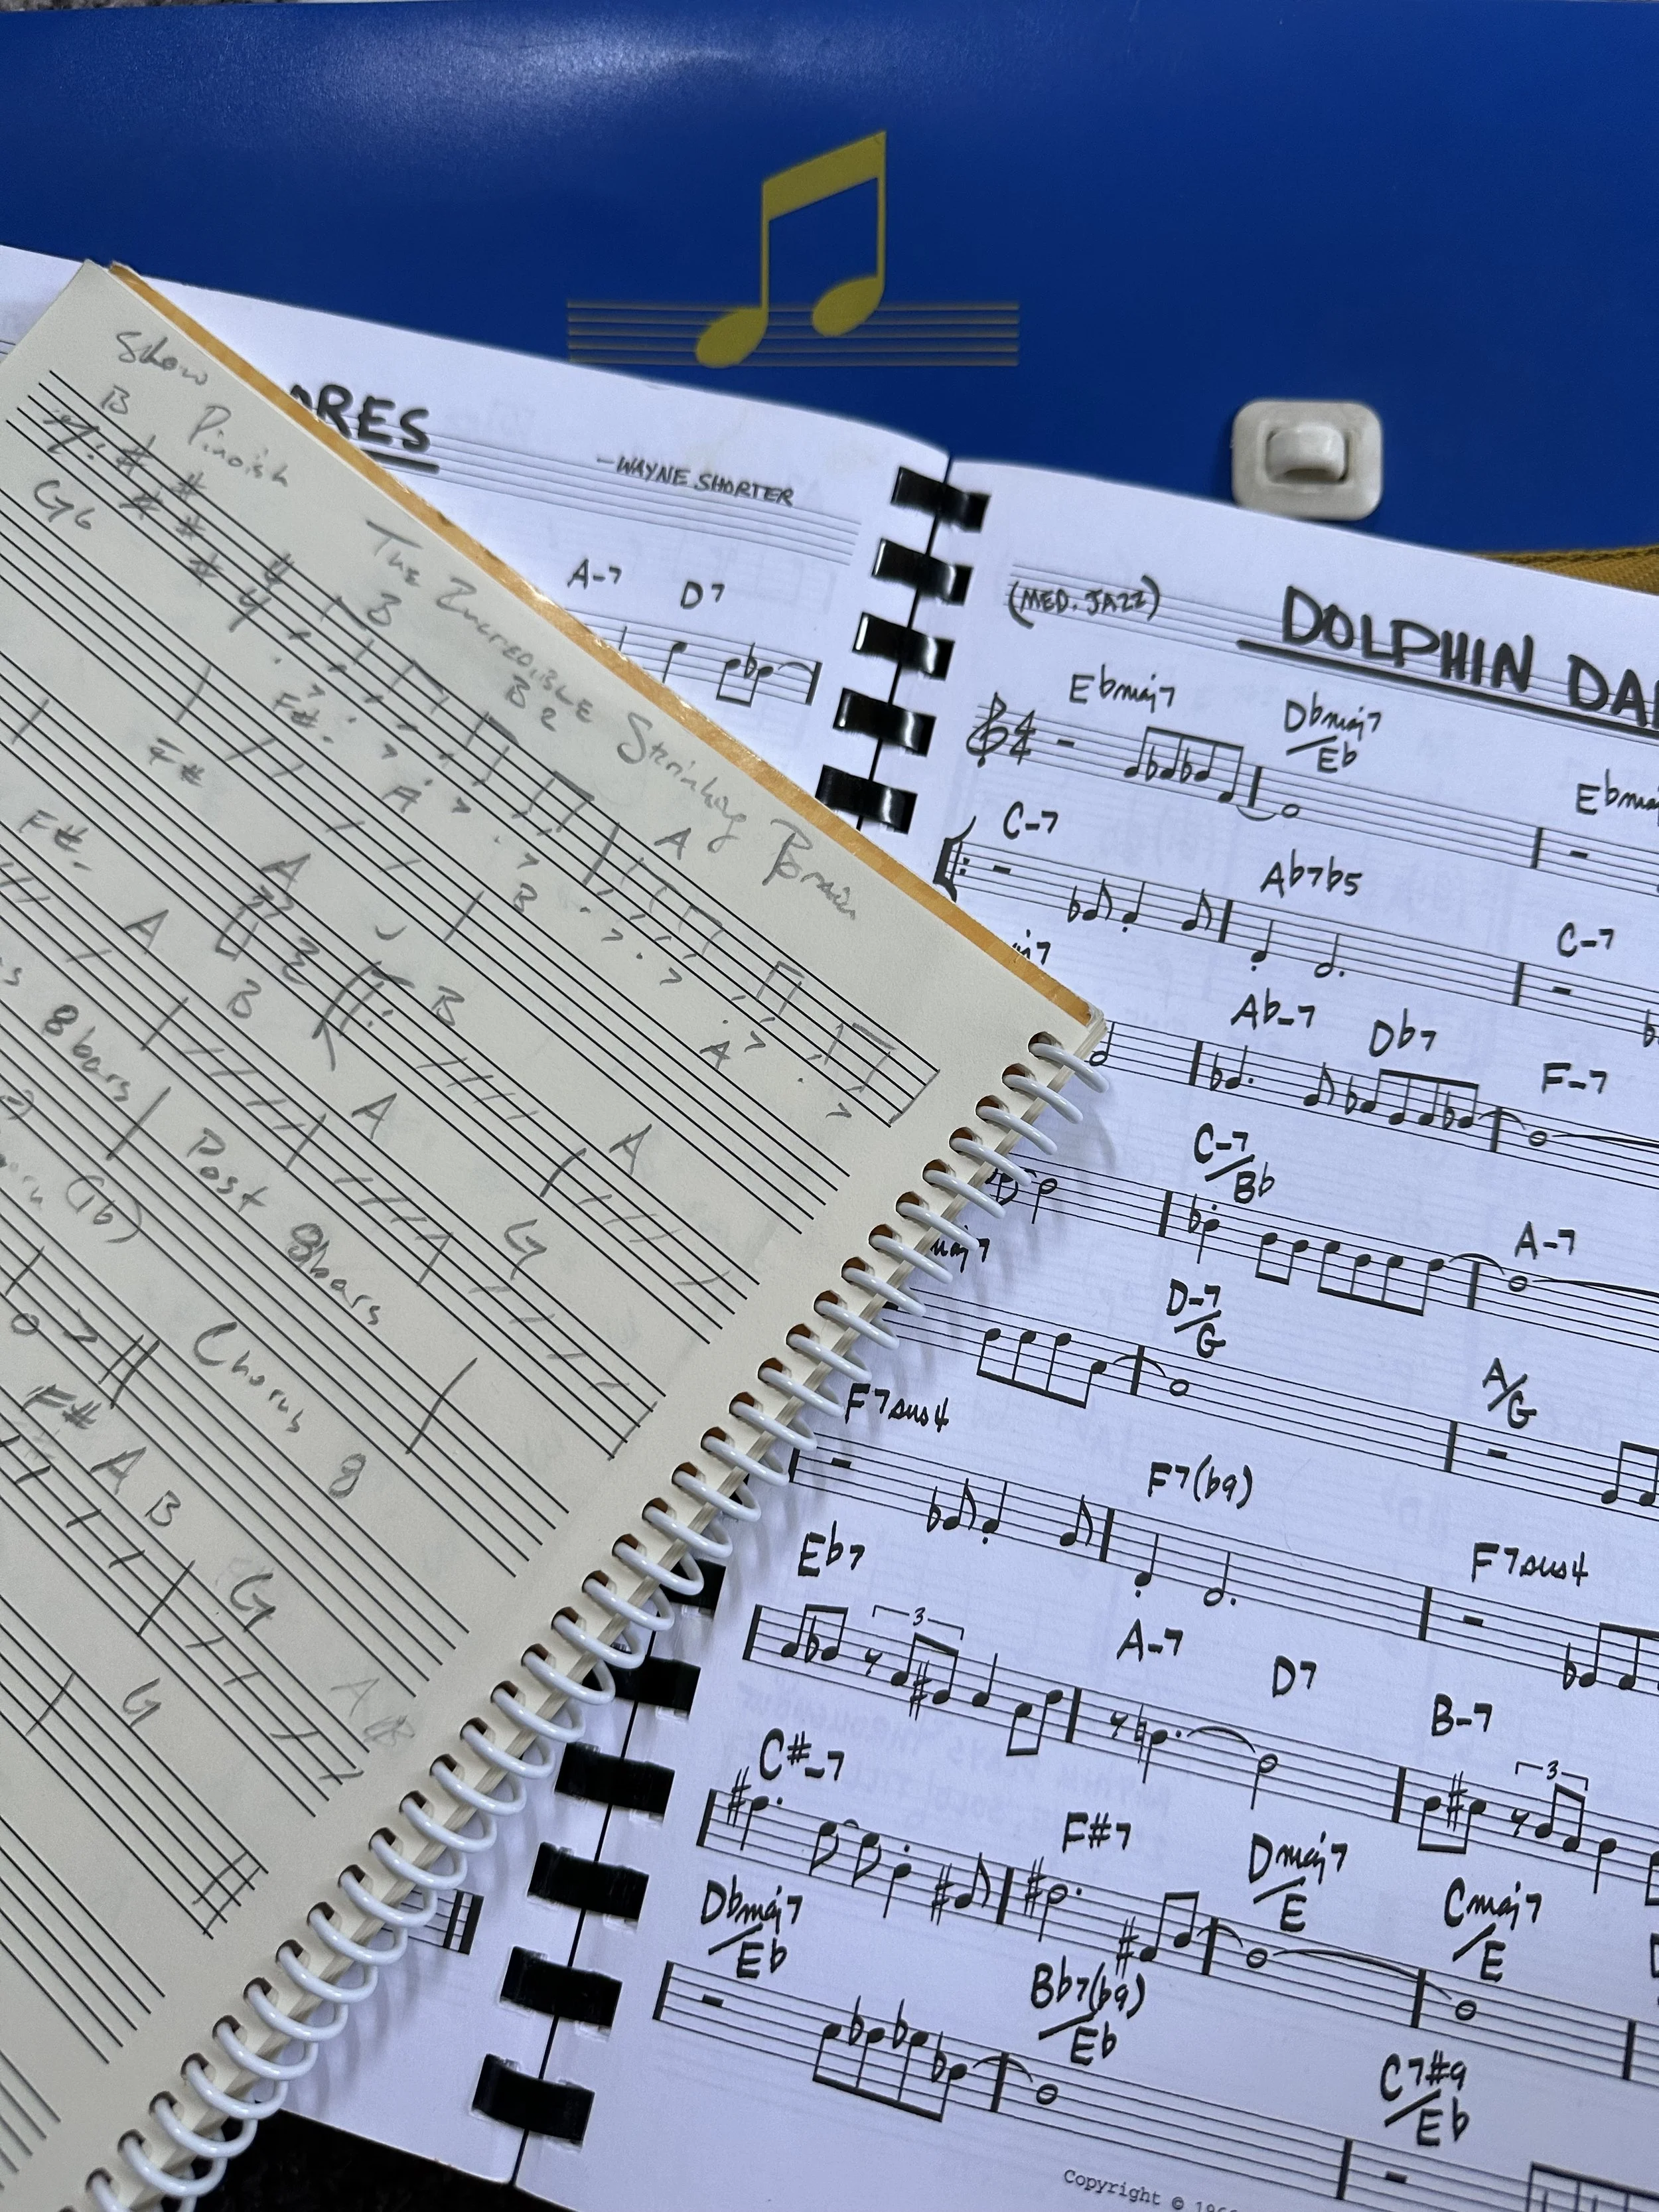 Slow
B Pinoish
The Incredible Shrinking Brain
G6
B
B2
A
F#
A
B
A
F#
A
B
A
A
F#
A
B
A
G
8 bars
Post 8bars
(Gb)
Chorus 8
F# A B
G
G
ORES
-WAYNE SHORTER
A-7 D7
(MED. JAZZ)
DOLPHIN DA
Ebmaj7 Dbmaj7/Eb Ebma
C-7 Ab7b5 C-7
j7 Ab-7 Db7 F-7
C-7/Bb A-7
maj7 D-7/G A/G
F7sus4 F7(b9) F7sus4
Eb7 3 A-7 D7 B-7 3
C#-7 F#7 Dmaj7/E Cmaj7/E
Dbmaj7/Eb Bb7(b9)/Eb C7#9/Eb
Copyright © 196